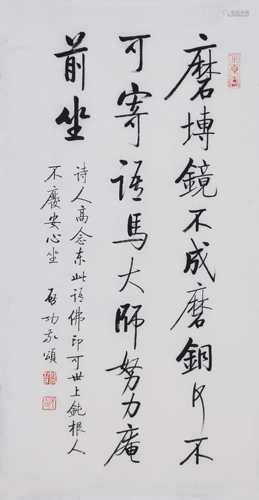 磨塼鏡不成磨銅片不
可寄語馬大師努力庵
前坐
詩人高念東此語佛印可世上鈍根人
不廢安心坐 啓功敬頌